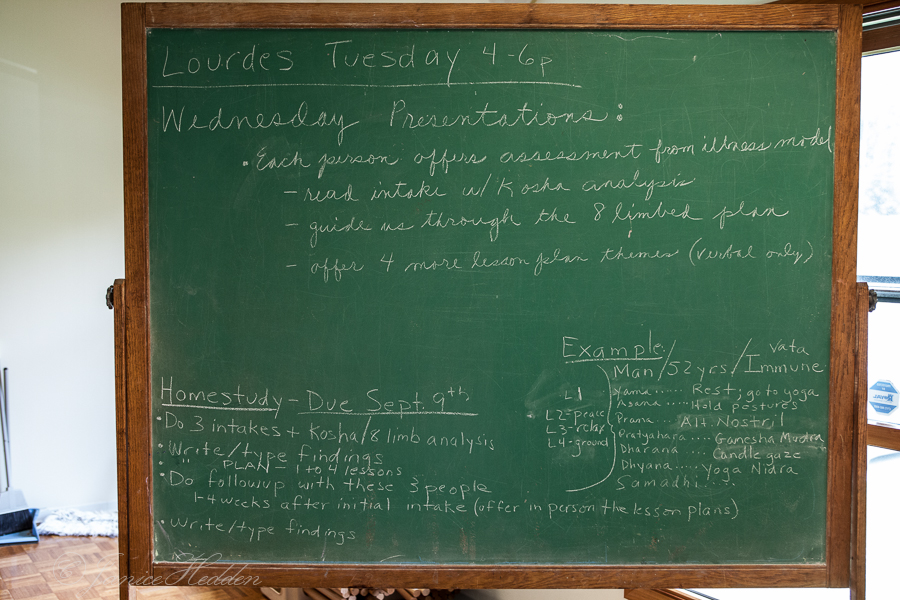 Lourdes Tuesday 4-6p
Wednesday Presentations:
• Each person offers assessment from illness model
- read intake w/ Kosha analysis
- guide us through the 8 limbed plan
- offer 4 more lesson plan themes (verbal only)
Homestudy - Due Sept. 9th
• Do 3 intakes + Kosha/8 limb analysis
• Write/type findings
• " " PLAN - 1 to 4 lessons
• Do followup with these 3 people
1-4 weeks after initial intake (offer in person the lesson plans)
• Write/type findings
Example:
Man/52 yrs/Immune
Vata
L1
L2-peace
L3-relax
L4-ground
Yama..... Rest, go to yoga
Asana ..... Hold postures
Prana... Alt. Nostril
Pratyahara .... Ganesha Mudra
Dharana... Candle gaze
Dhyana.... Yoga Nidra
Samadhi....
Hedden